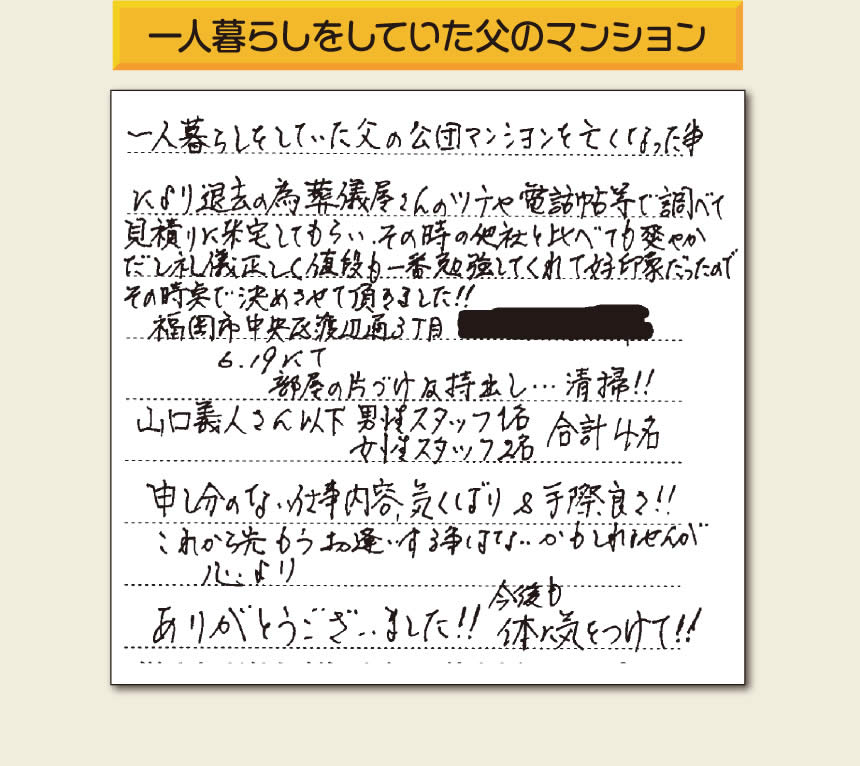 一人暮らしをしていた父のマンション
一人暮らしをしていた父の公団マンションを亡くなった事
により退去の為葬儀屋さんのツテや電話帖等で調べて
見積りに来宅してもらい、その時の他社と比べても爽やか
だし礼儀正しく値段も一番勉強してくれて好印象だったので
その時点で決めさせて頂きました!!
福岡市中央区渡辺通3丁目
6.19にて
部屋の片づけ&持出し…清掃!!
山口義人さん以下 男性スタッフ1名
女性スタッフ2名 合計4名
申し分のない仕事内容、気くばり&手際良さ!!
これから先もうお逢いする事はないかもしれませんが
心より
ありがとうございました!! 今後も
体に気をつけて!!